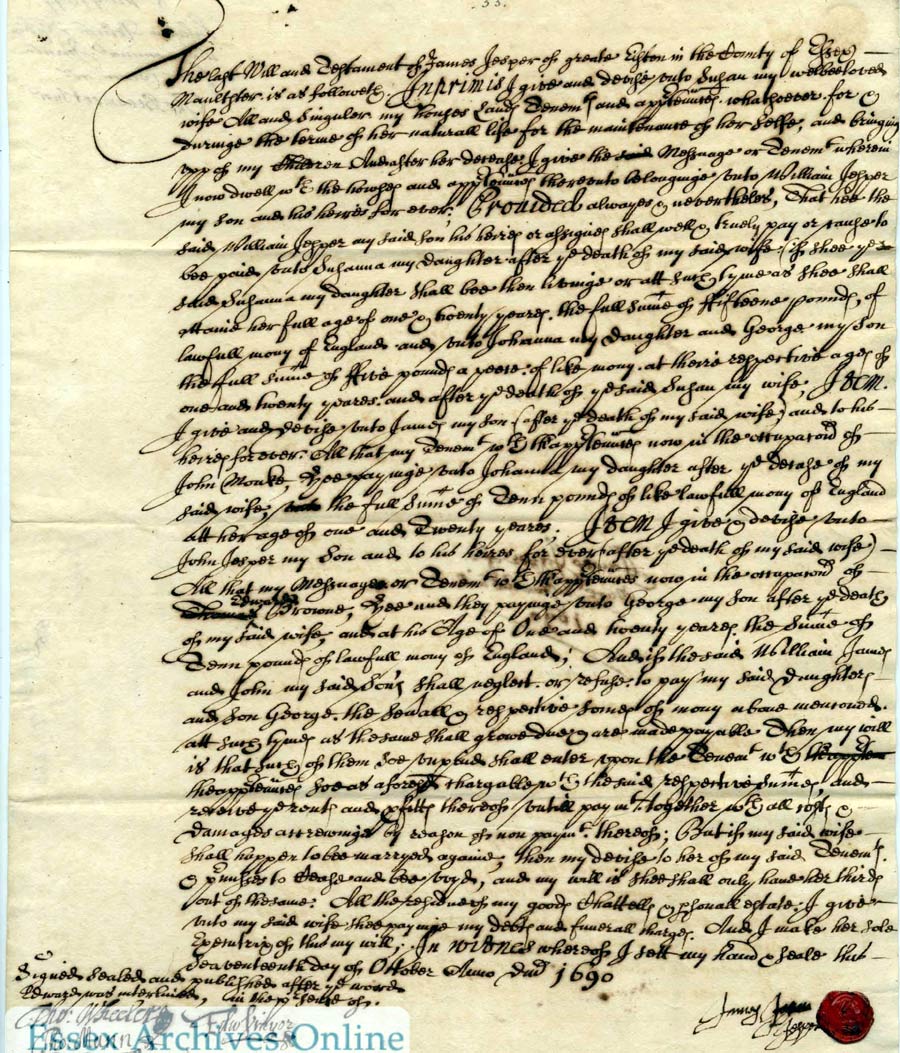 33.
The last Will and Testament of James Jesper of greate Eyston in the County of Essex
Maulthster is as followeth, Inprimis I give and devise unto Susan my welbeloved
wife All and Singuler my houses Lands Tenemts and apptennces whatsoever for &
dureinge the terme of her naturall life for the maintenance of her selfe, and bringing
upp of my Children And after her decease I give the said Messuage or Tenemt wherein
I now dwell wth the howses and apptennces thereunto belonginge unto William Jesper
my son and his heires for ever; Provided alwayes & nevertheles, That hee the
said William Jesper my said son his heires or assignes shall well & truely pay or cause to
bee paid unto Susanna my daughter after ye death of my said wife (if shee ye
said Susanna my daughter shall bee then liveinge or att such tyme as shee shall
attaine her full age of one & twenty yeares. the full summe of ffifteene pounds, of
lawfull mony of England and unto Johanna my Daughter and George my Son
the full summe of ffive pounds a peece of like mony at theire respective ages of
one and twenty yeares. and after ye death of ye said Susan my wife, Item.
I give and devise unto James my son (after ye death of my said wife) and to his
heires for ever. All that my Tenemt wth thapptennces now in the occupacon of
John Moake, Hee payinge unto Johanna my daughter after ye decease of my
said wife, unto the full Summe of Tenn pounds of like lawfull mony of England
att her age of one and Twenty yeares. Item I give & devise unto
John Jesper my Son and to his heires for ever (after ye death of my said wife)
All that my Messuage or Tenemt wth thapptennces now in the occupacon of
Edward
Thomas Browne, Hee and they payinge unto George my son after ye death
of my said wife, and at his Age of One and twenty yeares the Summe of
Tenn pounds of lawfull mony of England; And if the said William James
and John my said Sons shall neglect or refuse to pay my said daughters
and Son George the severall & respective Somes of mony above mencioned
att such tymes as the same shall growe due & are made payable Then my will
is that such of them soe unpaid shall enter upon the Tenemt wth thapptenn
thapptennces soe as aforesd chargable wth the said respective Summe, and
receive ye rents and pfitts thereof untill paymt together wth all costs &
damages accreweinge by reason of non paymt thereof; But if my said wife
shall happen to bee marryed againe, then my devise to her of my said Tenemts
& pmisses to Cease and bee voyd, and my will is shee shall only have her thirds
out of the same; All the residue of my goods Chattells & psonall estate I give
unto my said wife shee payinge my debts and funerall charges. And I make her sole
Executrix of this my will; In witness whereof I sett my hand & seale this
seaventeenth day of October Anno Dni 1690
Signed sealed and
published after ye word
Edward was interlined,
in the presence of.
Tho: Wheeler
James Jesper
Essex Archives Online